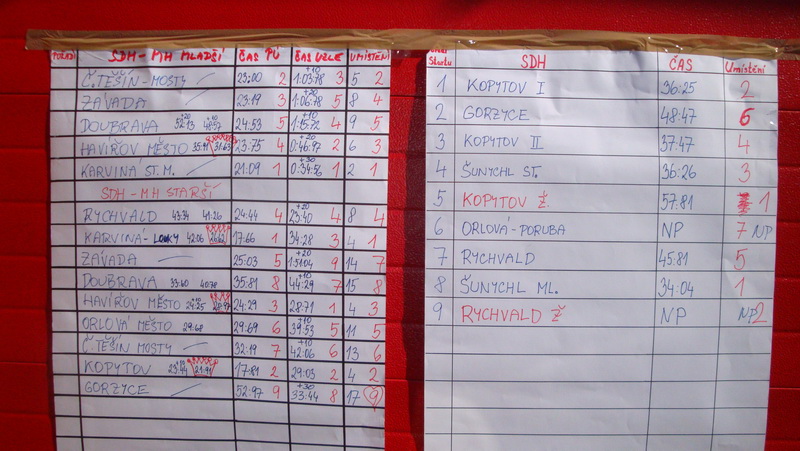 SDH - MH MLADŠÍ ČAS PÚ ČAS UZLE UMÍSTĚNÍ
Č.TĚŠÍN-MOSTY 23:00 2 +10 1:03:78 3 5 2
ZÁVADA 23:19 3 +20 1:06:78 5 8 4
DOUBRAVA 24:53 5 +10 4 9 5
HAVÍŘOV MĚSTO 23:75 4 +10 0:46:97 2 6 3
KARVINÁ ST. M. 21:09 1 +30 0:34:56 1 2 1
SDH - MH STARŠÍ
RYCHVALD 43:34 41:26 24:44 4 +20 23:40 4 8 4
KARVINÁ-LOUKY 42:06 17:66 1 34:28 3 4 1
ZÁVADA 25:03 5 +20 9 14 7
DOUBRAVA 33:60 40:78 35:81 8 +10 44:29 7 15 8
HAVÍŘOV MĚSTO +10 24:25 24:29 3 28:71 1 4 3
ORLOVÁ MĚSTO 29:68 29:69 6 +10 39:53 5 11 5
Č.TĚŠÍN MOSTY 32:19 7 +10 42:06 6 13 6
KOPYTOV 21:91 17:81 2 29:03 2 4 2
GORZYCE 52:97 9 +30 33:44 8 17 9
Startu SDH ČAS Umístění
1 KOPYTOV I 36:25 2
2 GORZYCE 48:47 6
3 KOPYTOV II 37:47 4
4 ŠUNYCHL ST. 36:26 3
5 KOPYTOV Ž. 57:81 1
6 ORLOVÁ-PORUBA NP 7 NP
7 RYCHVALD 45:81 5
8 ŠUNYCHL ML. 34:04 1
9 RYCHVALD Ž NP NP 2